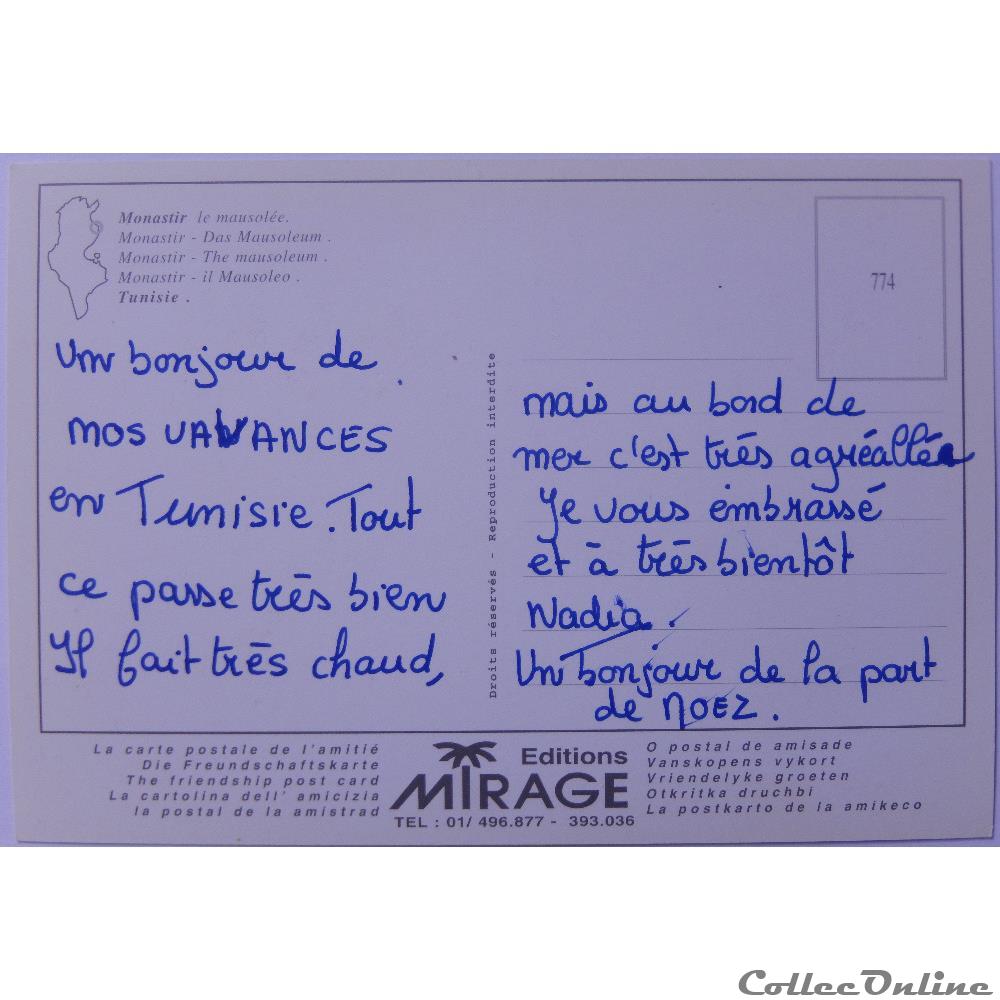 Monastir le mausolée.
Monastir - Das Mausoleum .
Monastir - The mausoleum .
Monastir - il Mausoleo .
Tunisie .
774
Un bonjour de
nos VAVANCES
en Tunisie. Tout
ce passe très bien
Il fait très chaud,
Droits réservés - Reproduction interdite
mais au bord de
mer c'est très agréallée
Je vous embrassé
et à très bientôt
Nadia.
Un bonjour de la part
de NOEZ.
La carte postale de l'amitié
Die Freundschaftskarte
The friendship post card
La cartolina dell' amicizia
la postal de la amistrad
Editions
MIRAGE
TEL : 01/ 496.877 - 393.036
O postal de amisade
Vanskopens vykort
Vriendelyke groeten
Otkritka druchbi
La postkarto de la amikeco
CollecOnline